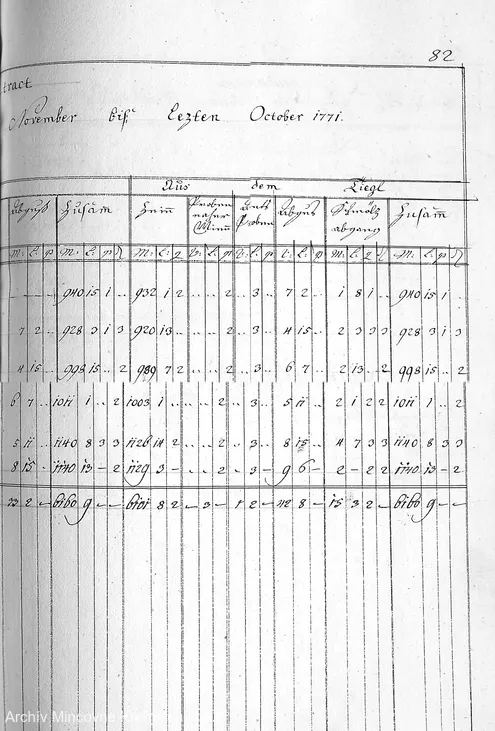 82
tract
November biß lezten October 1771.
Aus dem Tiegl
Abguß Zusam̄ Fein Proben Abguß Schmölz abgang Zusam̄
940 15 1 .. 932 1 2 .. .. 2 .. 3 .. 7 2 .. 1 8 1 .. 940 15 1 ..
7 2 .. 928 3 1 3 920 13 .. .. .. 2 .. 3 .. 4 15 .. 2 2 .. 3 928 3 1 3
4 15 .. 998 15 .. 2 989 7 2 .. .. 2 .. 3 .. 6 7 .. 2 13 .. 2 998 15 .. 2
6 7 .. 1011 1 .. 2 1003 1 .. .. .. 2 .. 3 .. 5 11 .. 2 1 2 2 1011 1 .. 2
5 11 .. 1140 8 3 3 1126 14 2 .. .. 2 .. 3 .. 8 15 .. 4 7 3 3 1140 8 3 3
8 15 .. 1140 13 – 2 1129 3 – .. .. 2 – 3 – 9 6 – 2 – 2 2 1140 13 – 2
6160 9 – – 6101 8 2 – 3 – 1 2 – 42 8 – 15 3 2 – 6160 9 – –
Archiv Mincovne